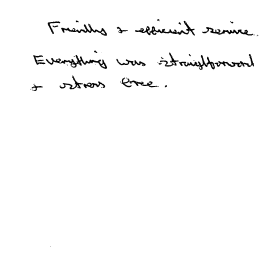 Friendly & efficient service.
Everything was straightforward
& stress free.